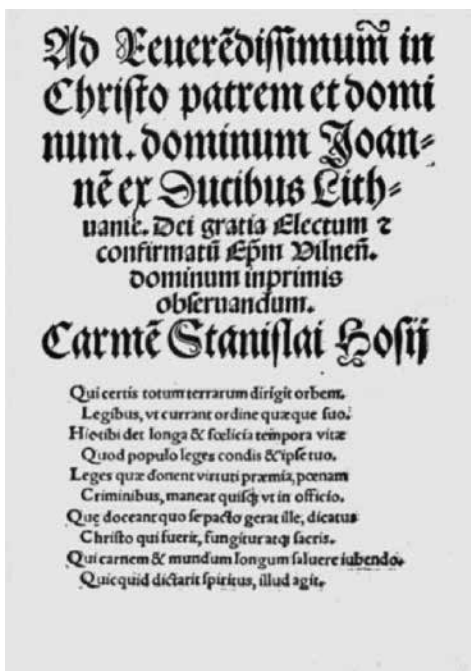 Ad Reuerẽdissimum̃ in
Christo patrem et domi
num. dominum Joan⸗
nẽ ex Ducibus Lith⸗
uanie. Dei gratia Electum ⁊
confirmatũ Ep̃m Vilneñ.
dominum inprimis
obseruandum.
Carmẽ Stanislai Hosij
Qui certis totum terrarum dirigit orbem.
Legibus, vt currant ordine quæque suo.
Hic tibi det longa & fœlicia tempora vitæ
Quod populo leges condis & ipse tuo.
Leges quæ donent virtuti præmia, pœnam
Criminibus, maneat quisq; vt in officio.
Que doceant quo se pacto gerat ille, dicatus
Christo qui fuerit, fungitur atq; sacris.
Qui carnem & mundum longum saluere iubendo.
Quicquid dictarit spiritus, illud agit.